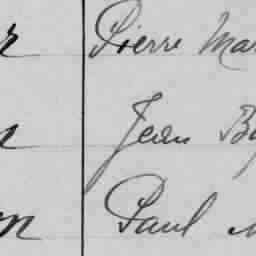 Pierre Mar
Jean By
Paul